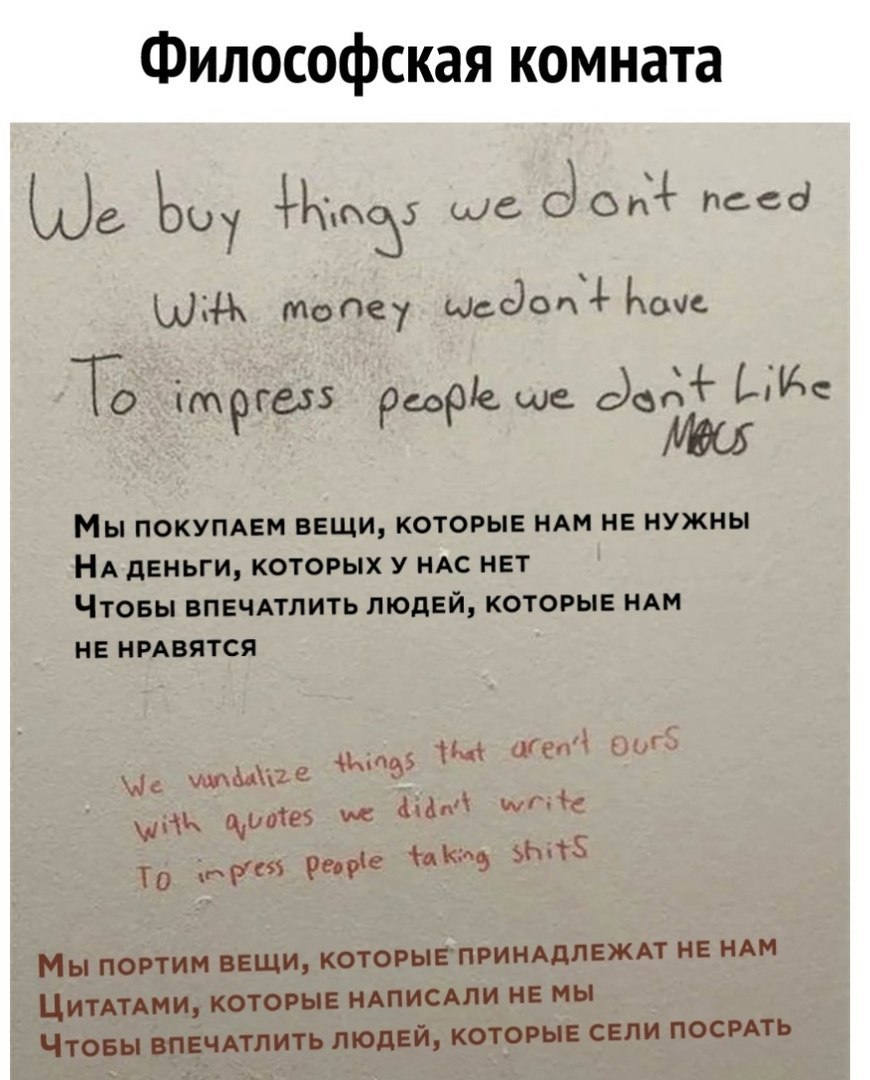 Философская комната
We buy things we don't need
With money we don't have
To impress people we don't Like
Мы покупаем вещи, которые нам не нужны
На деньги, которых у нас нет
Чтобы впечатлить людей, которые нам
не нравятся
We vandalize things that aren't ours
With quotes we didn't write
To impress people taking shits
Мы портим вещи, которые принадлежат не нам
Цитатами, которые написали не мы
Чтобы впечатлить людей, которые сели посрать